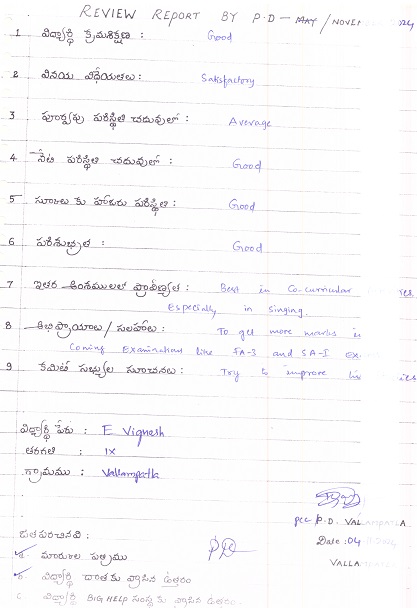 REVIEW REPORT BY P.D - MAY / NOVEM 2024
1 విద్యార్థి క్రమశిక్షణ : Good
2 వినయ విధేయతలు : Satisfactory
3 పూర్వపు పరిస్థితి చదువులో : Average
4 నేటి పరిస్థితి చదువులో : Good
5 స్కూలు కు హాజరు పరిస్థితి : Good
6 పరిశుభ్రత : Good
7 ఇతర అంశములలో ప్రావీణ్యత : Best in Co-curricular
Especially in singing.
8 అభిప్రాయాలు / సలహాలు : To get more marks in
Coming Examinations like FA-3 and SA-I Ex
9 కమిటీ సభ్యుల సూచనలు : Try to improve
విద్యార్థి పేరు : E Vignesh
తరగతి : IX
గ్రామము : Vallampatla
P.D. VALLAMPATLA
జతపరిచినవి :
Date : 04-11-2024
a. మార్కుల పత్రము
VALLA
b. విద్యార్థి దాతకు వ్రాసిన ఉత్తరం
c విద్యార్థి BIG HELP సంస్థ కు వ్రాసిన ఉత్తరం.